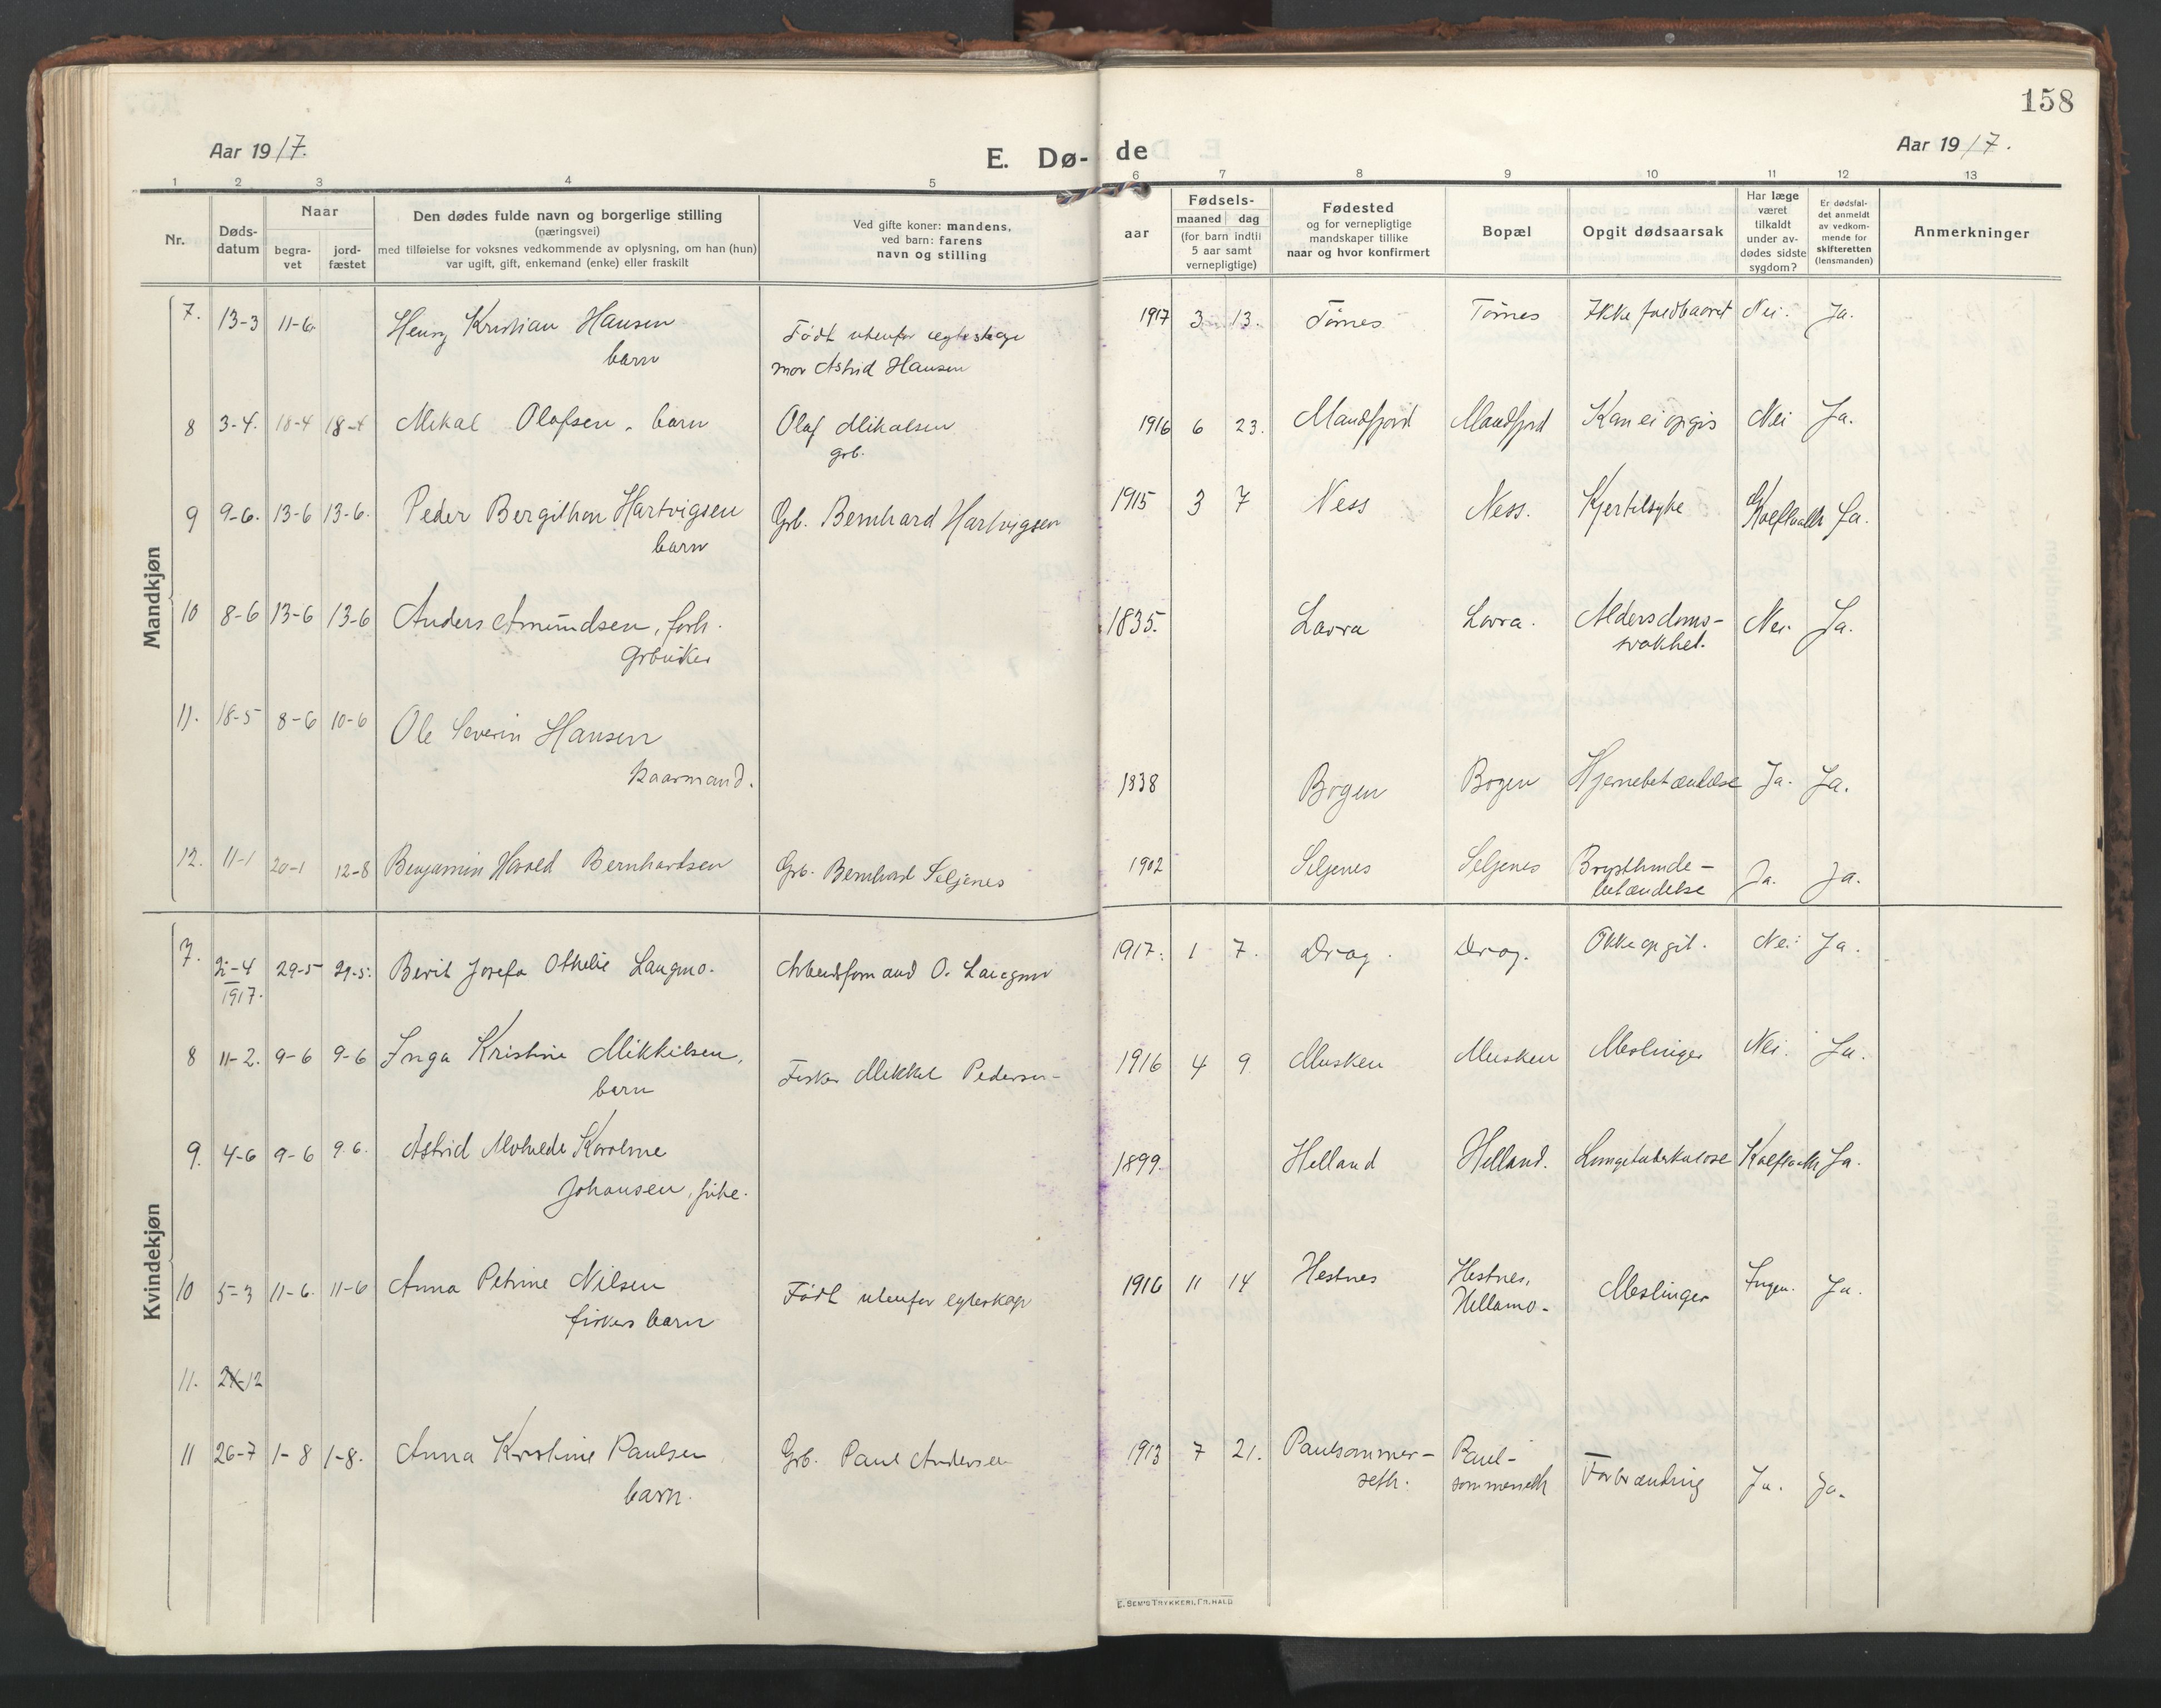 158
Aar 1917.
E. Dø-
de
Aar 1917.
1 2 3 4 5 6 7 8 9 10 11 12 13
Nr.
Døds-
datum
Naar
begra-
vet
jord-
fæstet
Den dødes fulde navn og borgerlige stilling
(næringsvei)
med tilføielse for voksnes vedkommende av oplysning, om han (hun)
var ugift, gift, enkemand (enke) eller fraskilt
Ved gifte koner: mandens,
ved barn: farens
navn og stilling
aar
Fødsels-
maaned dag
(for barn indtil
5 aar samt
vernepligtige)
Fødested
og for vernepligtige
mandskaper tillike
naar og hvor konfirmert
Bopæl
Opgit dødsaarsak
Har læge
været
tilkaldt
under av-
dødes sidste
sygdom?
Er dødsfal-
det anmeldt
av vedkom-
mende for
skifteretten
(lensmanden)
Anmerkninger
Mandkjøn
7. 13-3 11-6 Henry Kristian Hansen Født utenfor egteskap 1917 3 13. Tømes Tømes Ikke fuldbaaret Nei. Ja.
barn mor Astrid Hansen
8 3-4. 18-4 18-4 Mikal Olafsen, barn Olaf Mikalsen 1916 6 23. Mandfjord Mandfjord Kan ei opgis Nei Ja.
grb.
9 9-6. 13-6 13-6. Peder Bergithon Hartvigsen Grb. Bernhard Hartvigsen 1915 3 7 Ness Ness. Kjertelsyke Ja.
barn
10 8-6 13-6 13-6 Anders Amundsen, forh. 1835. Lavra Lavra. Aldersdoms- Nei. Ja.
Grbruker svakhet.
11. 18-5 8-6 10-6 Ole Severin Hansen
kaarmand. 1838 Bogen Bogen Hjernebetændelse Ja. Ja.
12. 11-1 20-1 12-8 Benjamin Harald Bernhardsen Grb. Bernhard Seljenes 1902 Seljenes Seljenes Brysthinde- Ja. Ja.
betændelse
Kvindekjøn
7. 2-4 29-5 29-5. Berit Josefa Othelie Langmo. Arbeidsformand O. Langmo 1917. 1 7. Drag. Drag. Ikke opgit. Nei Ja.
1917.
8 11-2. 9-6 9-6 Inga Kristine Mikkelsen, Fisker Mikkel Pedersen- 1916 4 9 Musken Musken Meslinger Nei. Ja.
barn
9. 4-6 9-6 9.6. Astrid Mathilde Karoline 1899 Helland Helland. Lungetuberkulose Ja.
Johansen, pike.
10 5-3 11-6. 11-6 Anna Petrine Nilsen Født utenfor egteskap 1916 11 14 Hestnes Hestnes, Meslinger Ingen. Ja.
fiskers barn Hellamo-
11. 21-12
11 26-7 1-8 1-8. Anna Kristine Paulsen Grb. Paul Andersen 1913 7 21. Paulsommer- Paul- Forbrænding Ja. Ja.
barn. seth. sommerseth
E. SEM'S TRYKKERI, FR.HALD